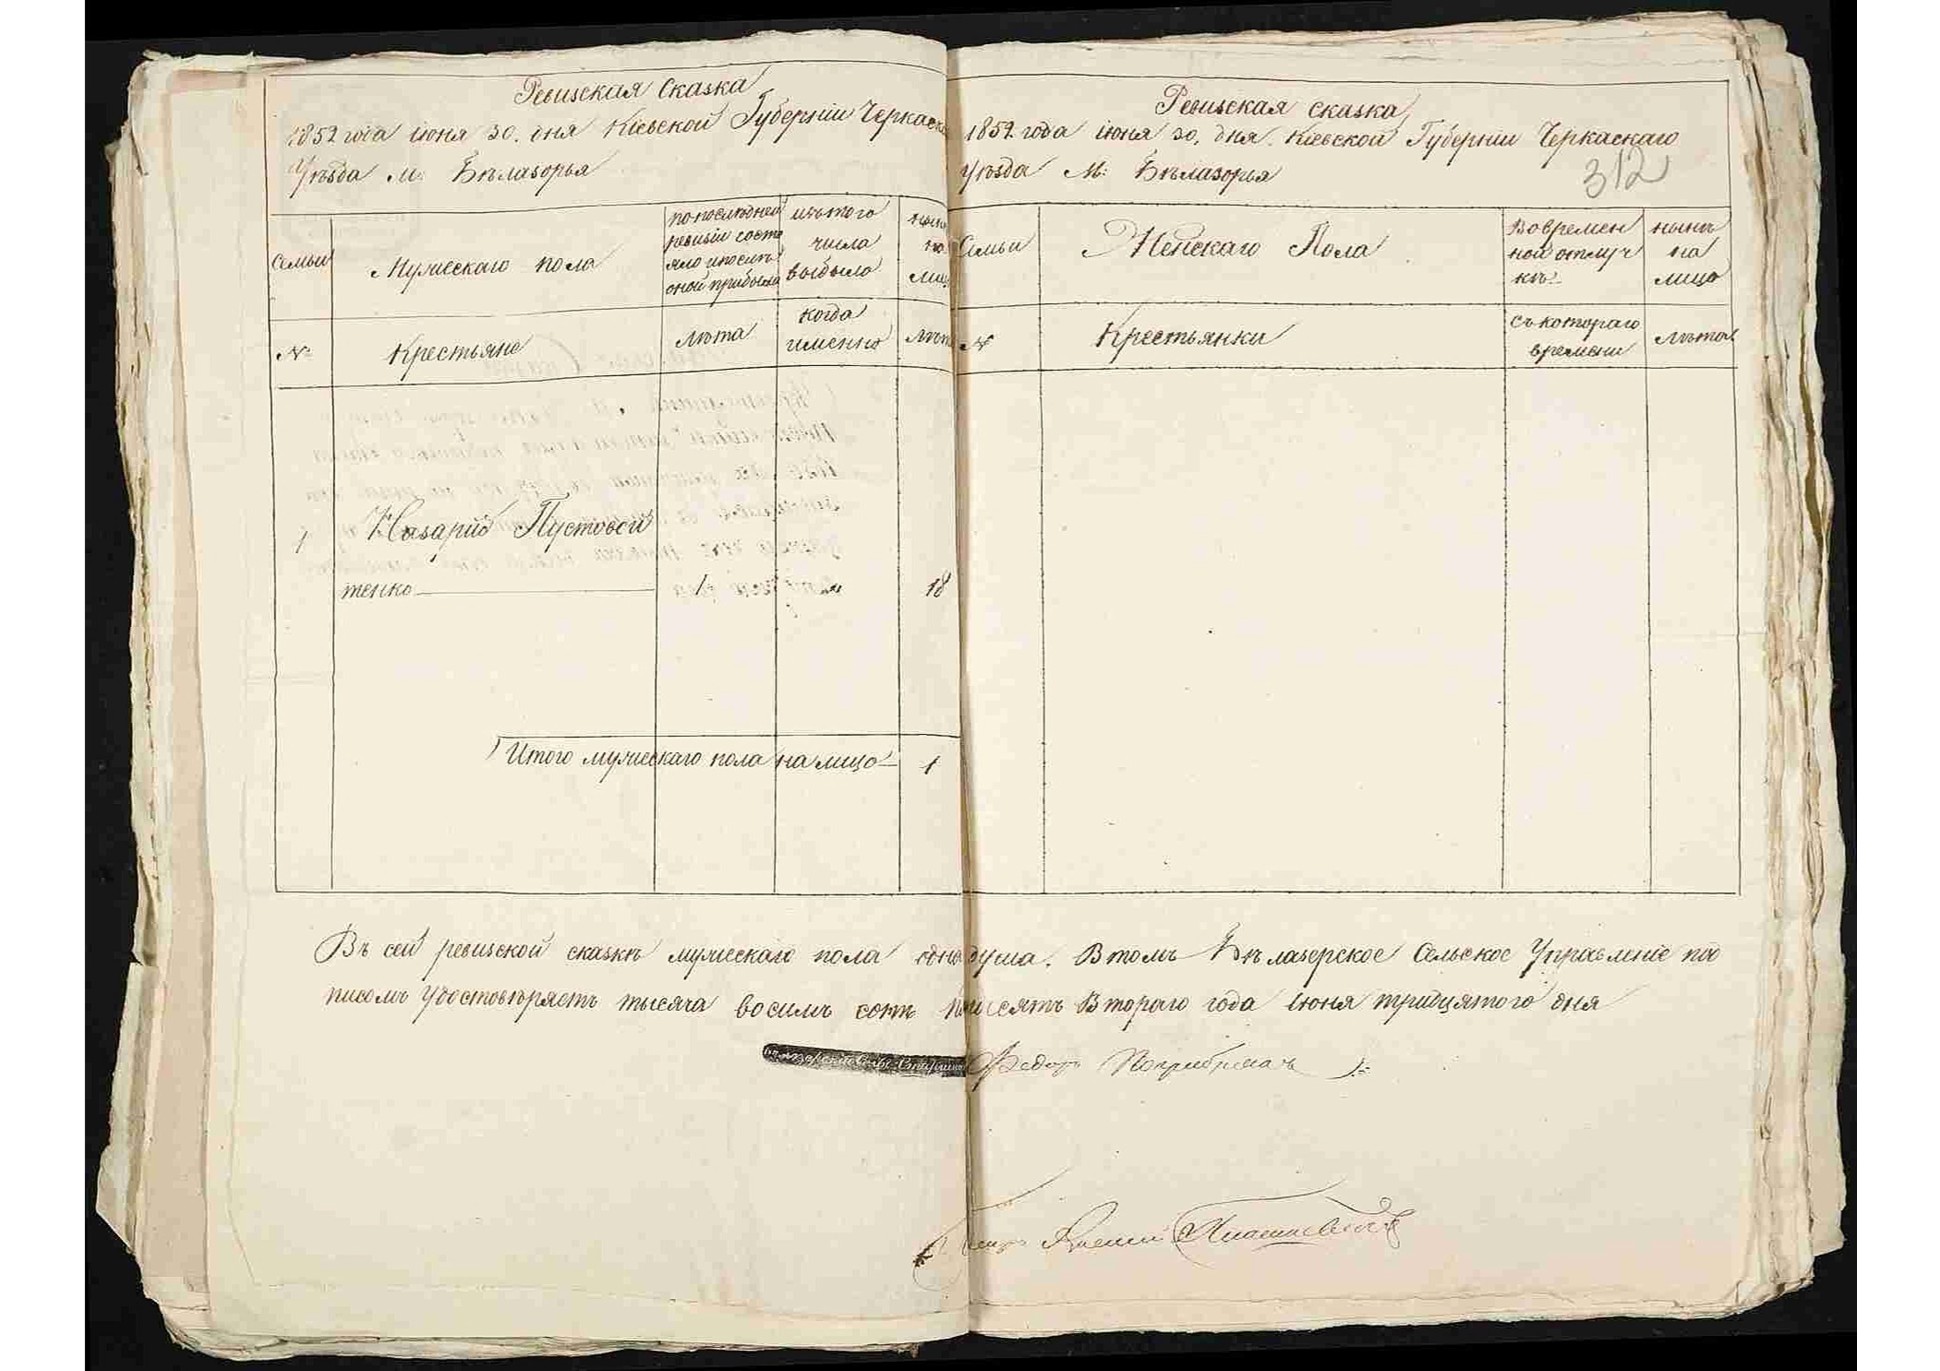 Ревизская Сказка
1852 года Июня 30. дня Кіевской Губерніи Черкаска
Уѣзда М: Бѣлазорья
Семьи
Мужескаго пола
по последней
ревизіи состо
яло и послѣ
оной прибыло
изъ того
числа
выбыло
нынѣ
на
лицо
№
Крестьяне
лѣта
когда
именно
лѣта
1
Назарій Пустовой
тенко
1
"
18
Итого мужескаго пола на лицо
1
Ревизская сказка
1852 года Июня 30. дня. Кіевской Губерніи Черкаскаго
Уѣзда М: Бѣлазорья
312
Семьи
Женскаго Пола
Во времен
ной отлуч
кѣ
нынѣ
на
лицо
№
Крестьянки
съ котораго
времени
лѣта
Въ сей ревизской сказкѣ мужескаго пола одна душа. В томъ Бѣлазерское Сельское Управленіе под
писомъ удостовѣряетъ тысяча восимъ сотъ пятьдесятъ Втораго года Июня тридцятого дня
Бѣлозерскій Сельс. Старшина
Федоръ